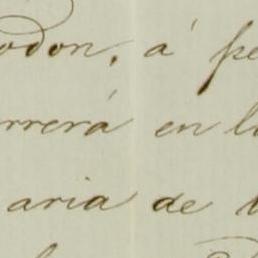 odon, á pe
rrerá en la
aria de